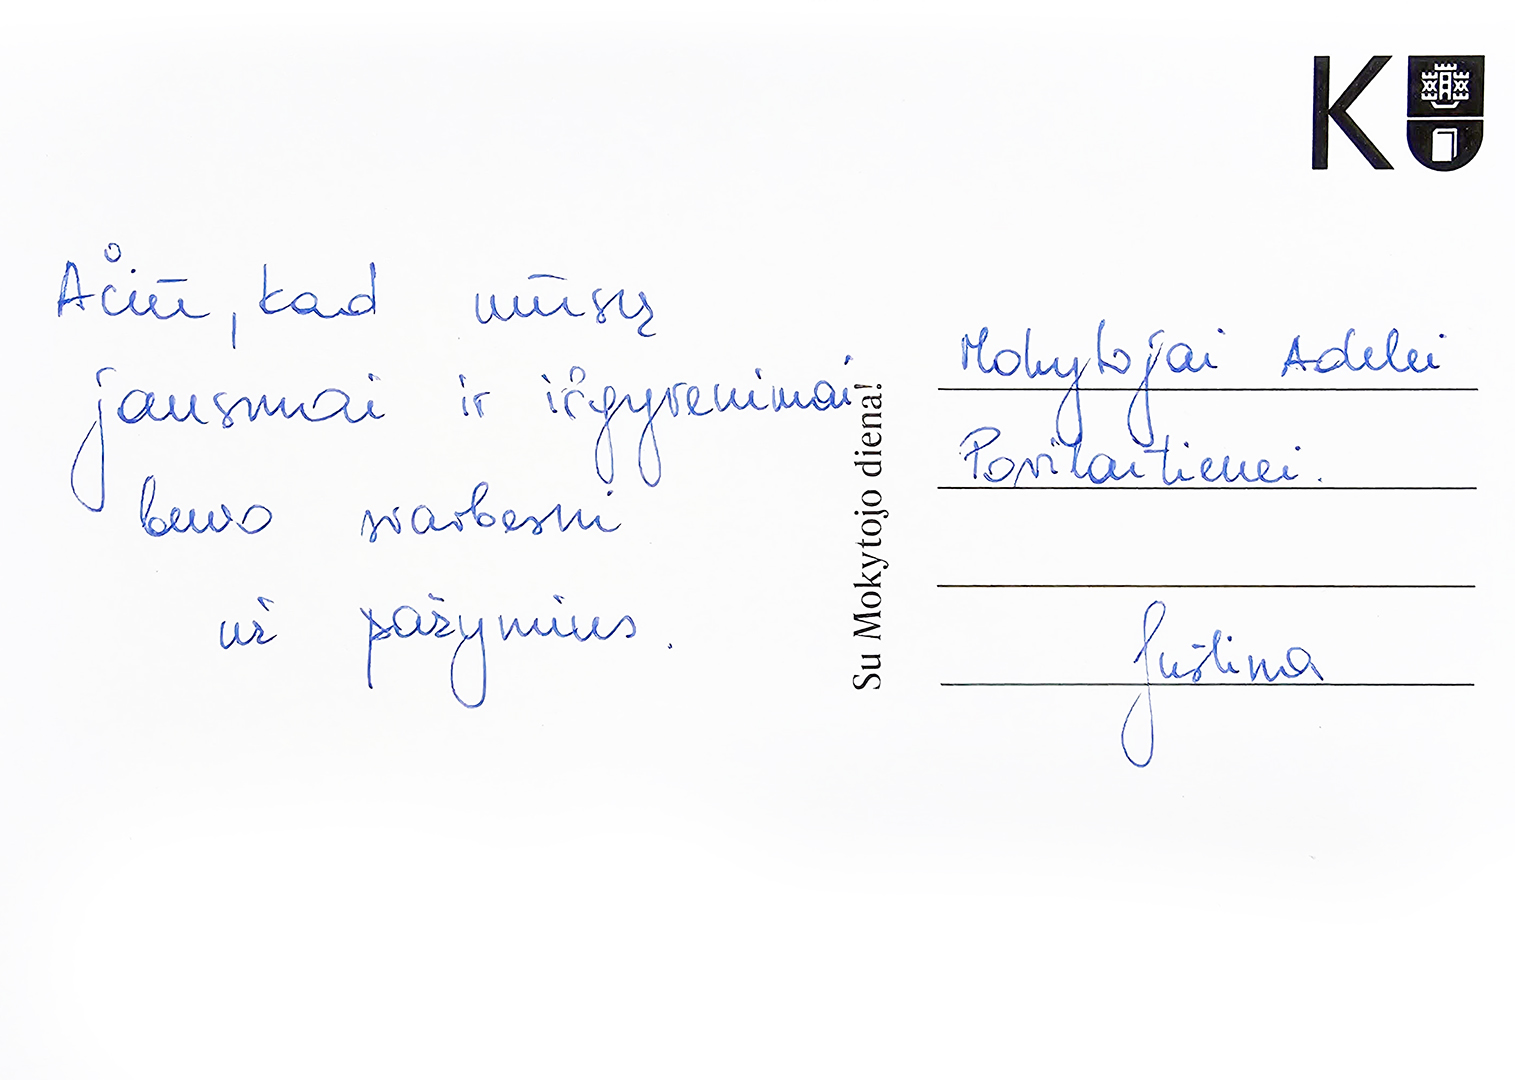 Ačiū, kad mūsų
jausmai ir išgyvenimai
buvo svarbesni
už pažymius.
Su Mokytojo diena!
K
Mokytojai Adelei
Povilaitienei.
Justina